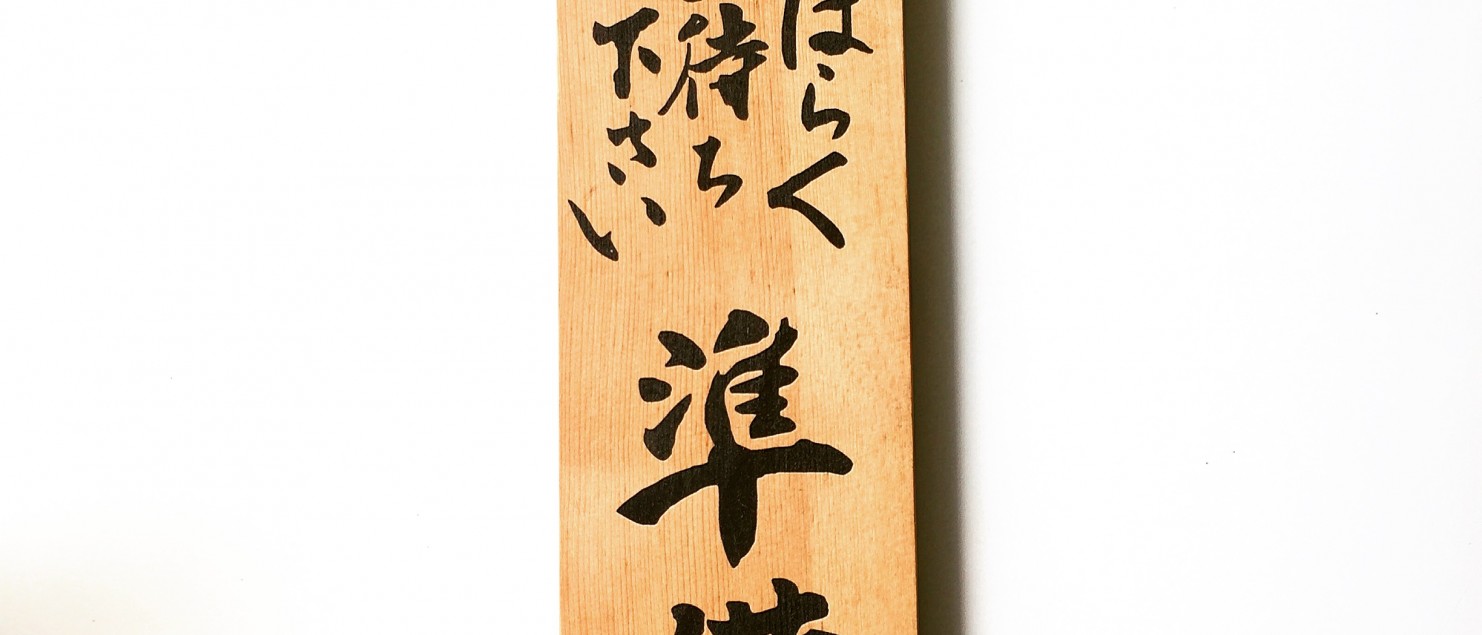 ばらく
待ち
下さい
準